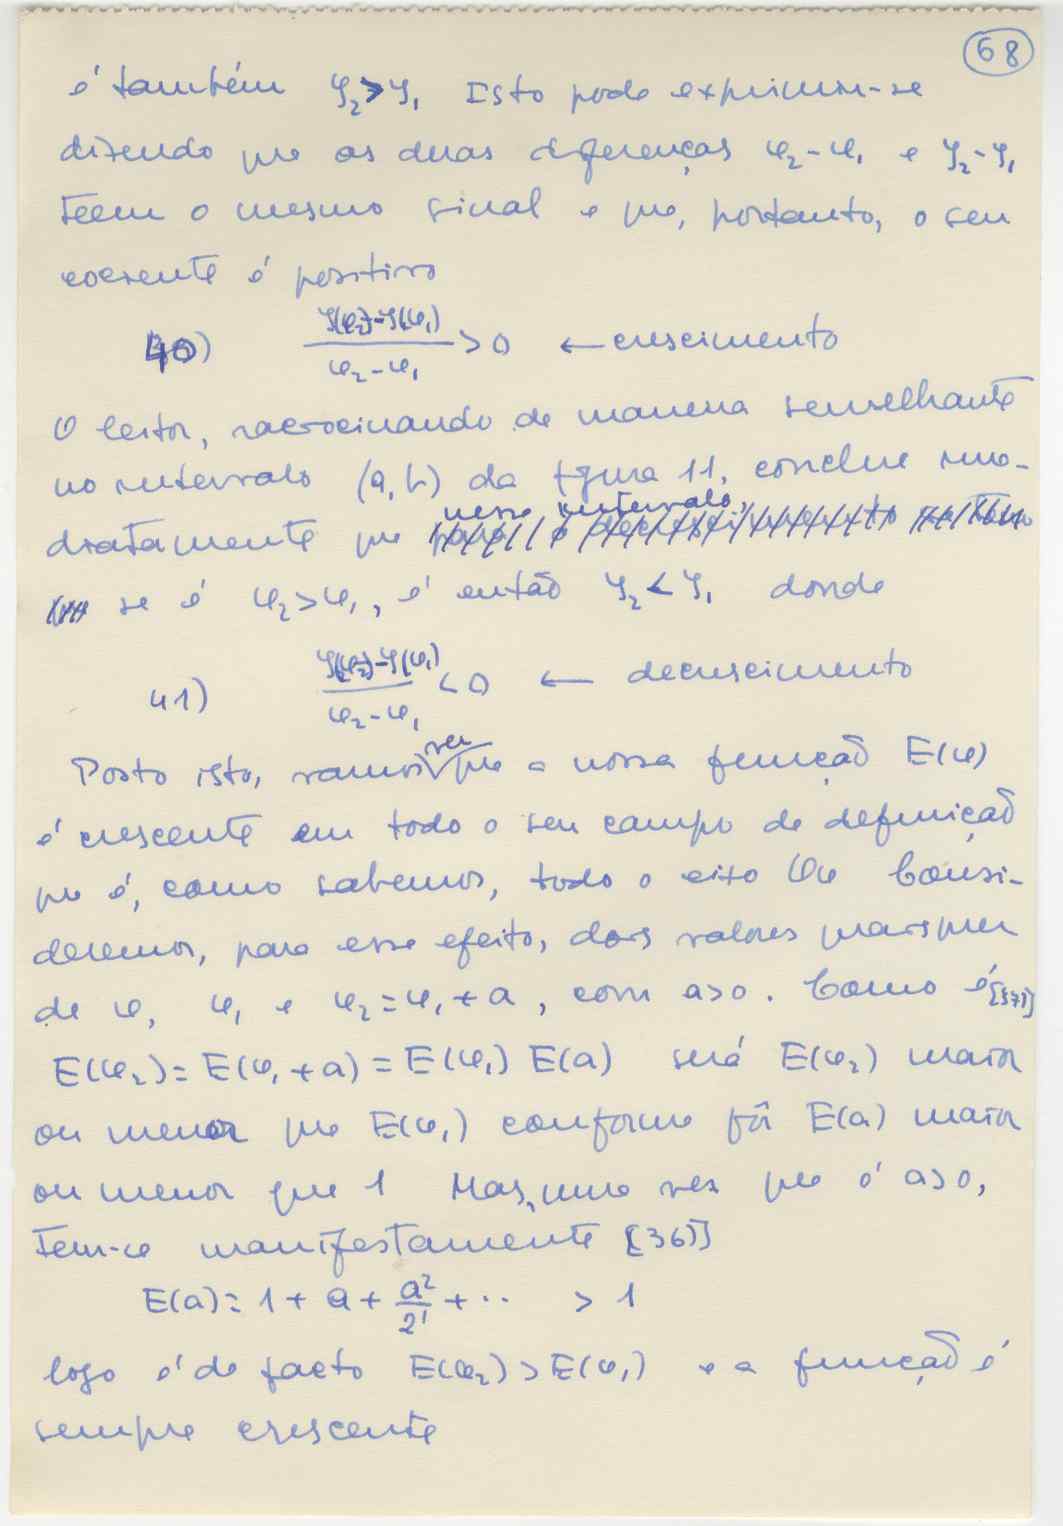 68
é também y₂>y₁ Isto pode exprimir-se
dizendo que as duas diferenças x₂-x₁ e y₂-y₁
teem o mesmo sinal e que, portanto, o seu
cociente é positivo
40) (y(x₂)-y(x₁))/(x₂-x₁) > 0 ← crescimento
O leitor, raciocinando de maneira semelhante
no intervalo (a,b) da figura 11, conclue ime-
nesse intervalo,
diatamente que
se é x₂>x₁, é então y₂<y₁ donde
41) (y(x₂)-y(x₁))/(x₂-x₁) < 0 ← decrescimento
ver
Posto isto, vamos que a nossa função E(x)
é crescente em todo o seu campo de definição
que é, como sabemos, todo o eixo Ox Consi-
deremos, para esse efeito, dois valores quaisquer
de x, x₁ e x₂=x₁+a, com a>0. Como é [37)]
E(x₂)=E(x₁+a)=E(x₁) E(a) será E(x₂) maior
ou menor que E(x₁) conforme fôr E(a) maior
ou menor que 1 Mas, uma vez que é a>0,
tem-se manifestamente [36)]
E(a)=1+a+a²/2!+.. > 1
logo é de facto E(x₂)>E(x₁) e a função é
sempre crescente